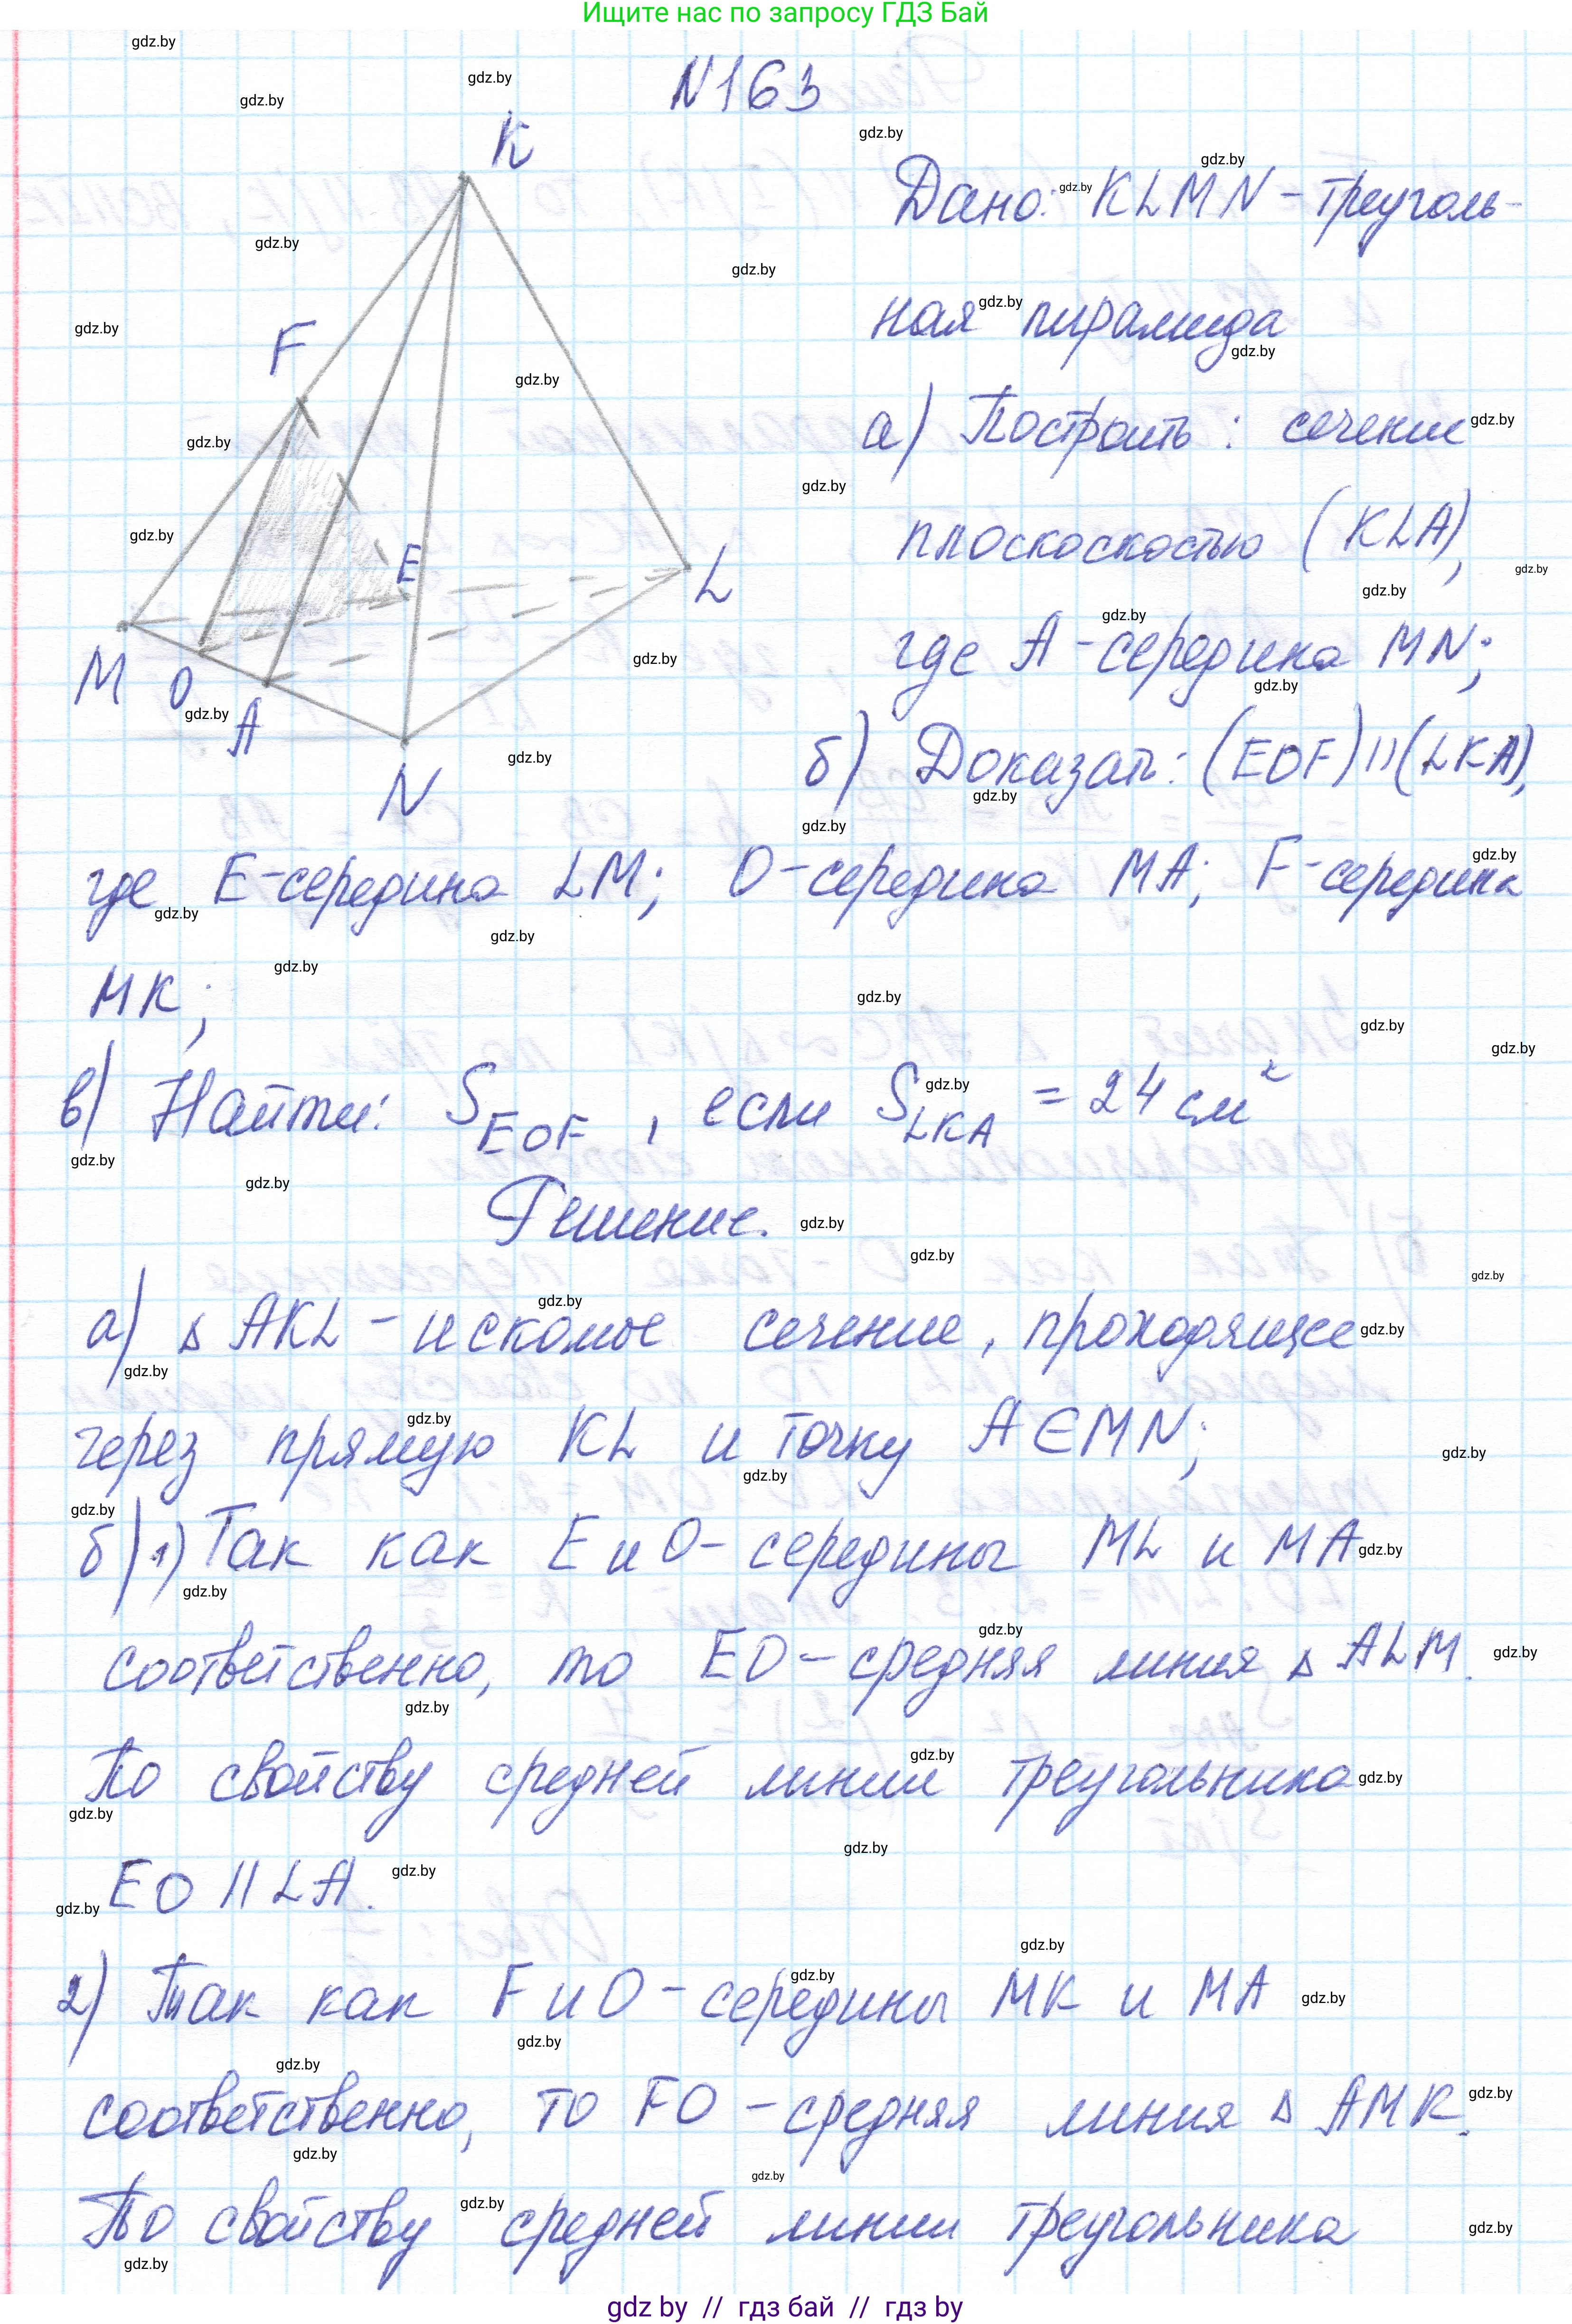 Ищите нас по запросу ГДЗ Бай
N163
K
F
E
L
M
O
A
N
Дано: KLMN - треуголь-
ная пирамида
а) Построить: сечение
плоскоскостью (KLA),
где A - середина MN;
б) Доказать: (EOF)||(LKA),
где E-середина LM; O-середина MA; F-середина
MK;
в) Найти: S EOF, если S LKA = 24 см²
Решение.
а) △ AKL - искомое сечение, проходящее
через прямую KL и точку A∈MN;
б) 1) Так как E и O - середины ML и MA
соответственно, то EO - средняя линия △ ALM.
По свойству средней линии треугольника
EO || LA.
2) Так как F и O - середины MK и MA
соответственно, то FO - средняя линия △ AMK.
По свойству средней линии треугольника
gdz by // гдз бай // гдз by